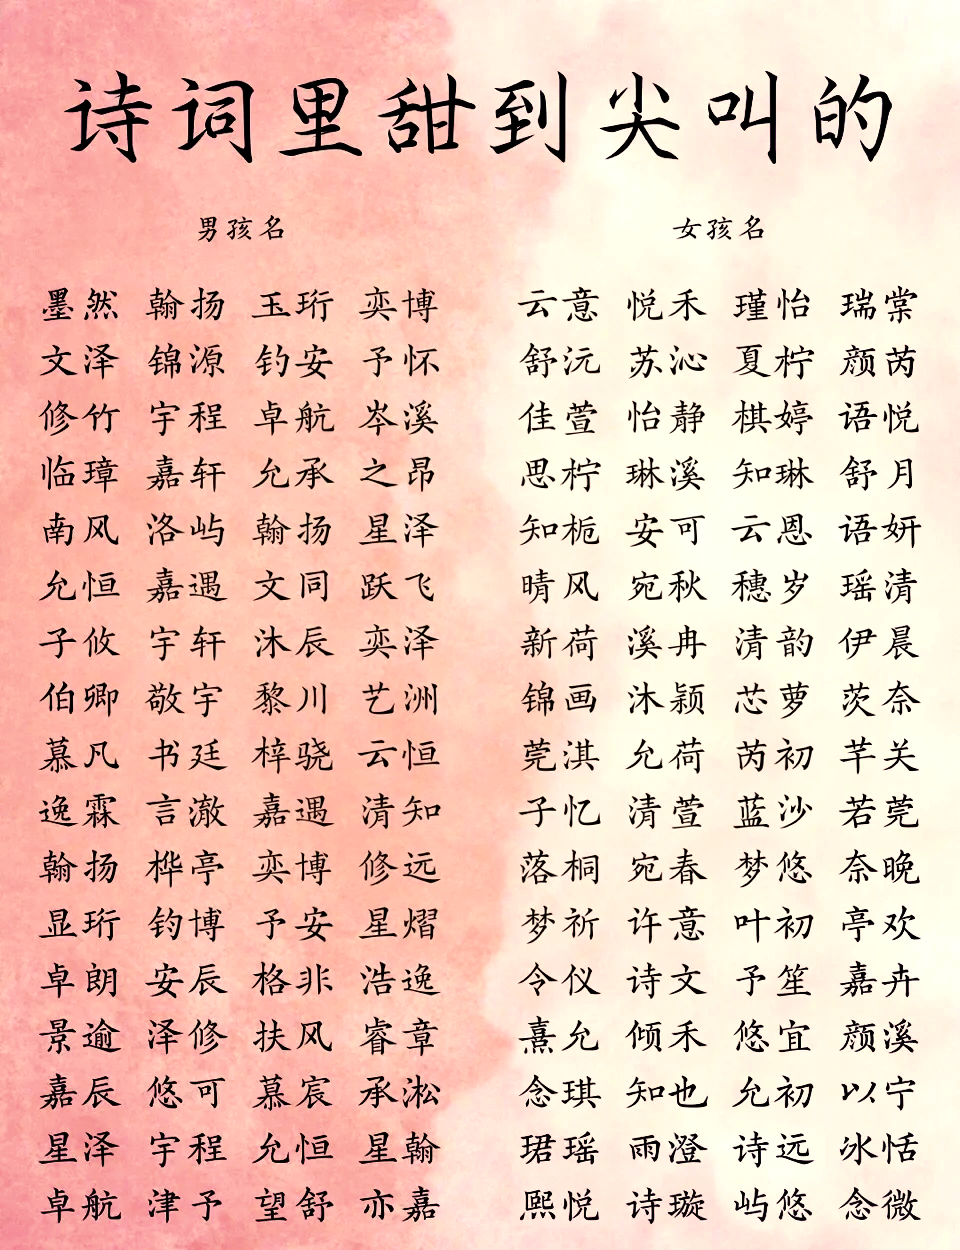 诗词里甜到尖叫的
男孩名 女孩名
墨然 翰扬 玉珩 奕博 云意 悦禾 瑾怡 瑞棠
文泽 锦源 钧安 予怀 舒沅 苏沁 夏柠 颜芮
修竹 宇程 卓航 岑溪 佳萱 怡静 棋婷 语悦
临璋 嘉轩 允承 之昂 思柠 琳溪 知琳 舒月
南风 洛屿 翰扬 星泽 知栀 安可 云恩 语妍
允恒 嘉遇 文同 跃飞 晴风 宛秋 穗岁 瑶清
子攸 宇轩 沐辰 奕泽 新荷 溪冉 清韵 伊晨
伯卿 敬宇 黎川 艺洲 锦画 沐颖 芯萝 茨奈
慕凡 书廷 梓骁 云恒 莞淇 允荷 芮初 芊关
逸霖 言澈 嘉遇 清知 子忆 清萱 蓝沙 若莞
翰扬 桦亭 奕博 修远 落桐 宛春 梦悠 奈晚
显珩 钧博 予安 星熠 梦祈 许意 叶初 亭欢
卓朗 安辰 格非 浩逸 令仪 诗文 予笙 嘉卉
景逾 泽修 扶风 睿章 熹允 倾禾 悠宜 颜溪
嘉辰 悠可 慕宸 承淞 念琪 知也 允初 以宁
星泽 宇程 允恒 星翰 珺瑶 雨澄 诗远 冰恬
卓航 津予 望舒 亦嘉 熙悦 诗璇 屿悠 念微